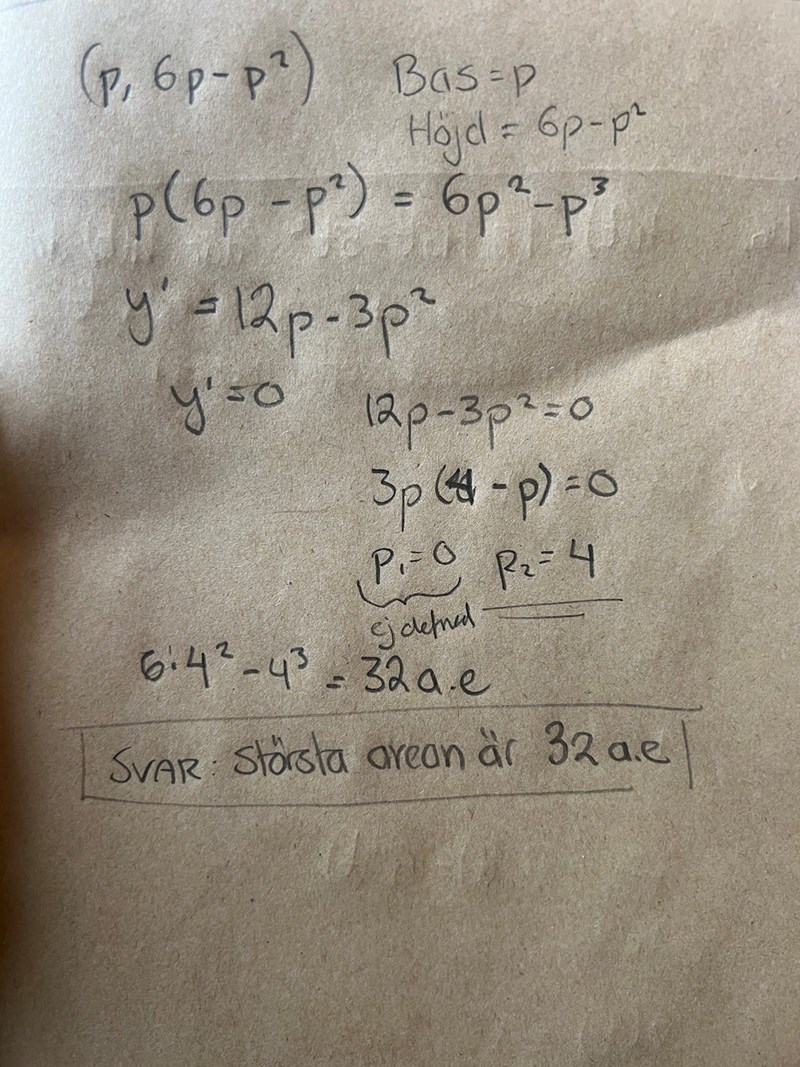 (p, 6p-p²) Bas = p
Höjd = 6p-p²
p(6p - p²) = 6p²-p³
y' = 12p - 3p²
y'=0 12p-3p²=0
3p(4 - p) = 0
p₁=0 p₂=4
6·4² - 4³ = 32 a.e
SVAR: Största arean är 32 a.e